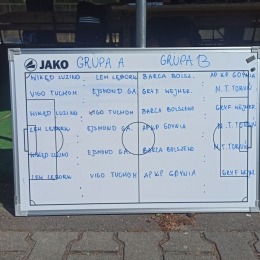 JAKO GRUPA A GRUPA B
WIKĘD LUZINO : LEW LĘBORK BARCA BOLSZ. : AP KP GDYNIA
VIGO TUCHOM : EJSMOND GA. GRYF WEJHER. : N.T. TORUŃ
WIKĘD LUZINO : VIGO TUCHOM BARCA BOLSZEWO : GRYF WEJHER
LEW LĘBORK : EJSMOND GA. AP KP GDYNIA : N.T. TORUŃ
WIKĘD LUZINO : EJSMOND GA. BARCA BOLSZEWO : N.T. TORUŃ
LEW LĘBORK : VIGO TUCHOM AP KP GDYNIA : GRYF WEJ